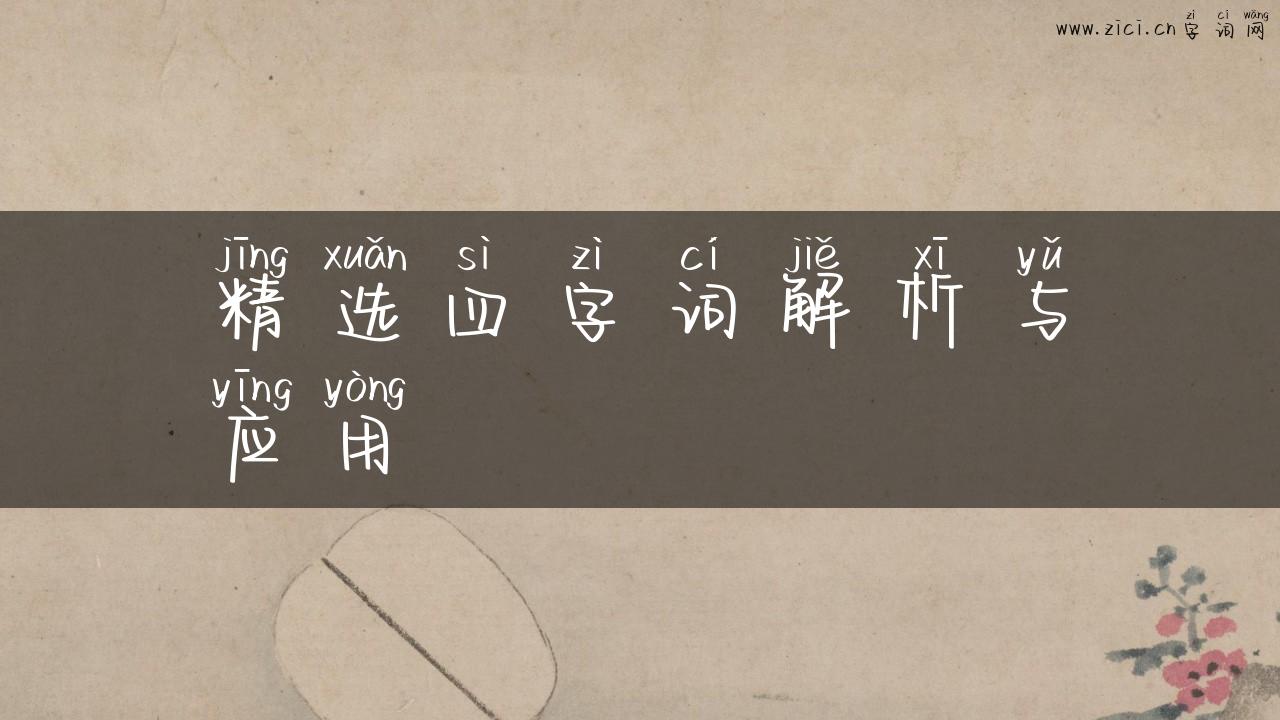 zì cí wǎng
www.zici.cn字词网
jīng xuǎn sì zì cí jiě xī yǔ
精选四字词解析与
yīng yòng
应用